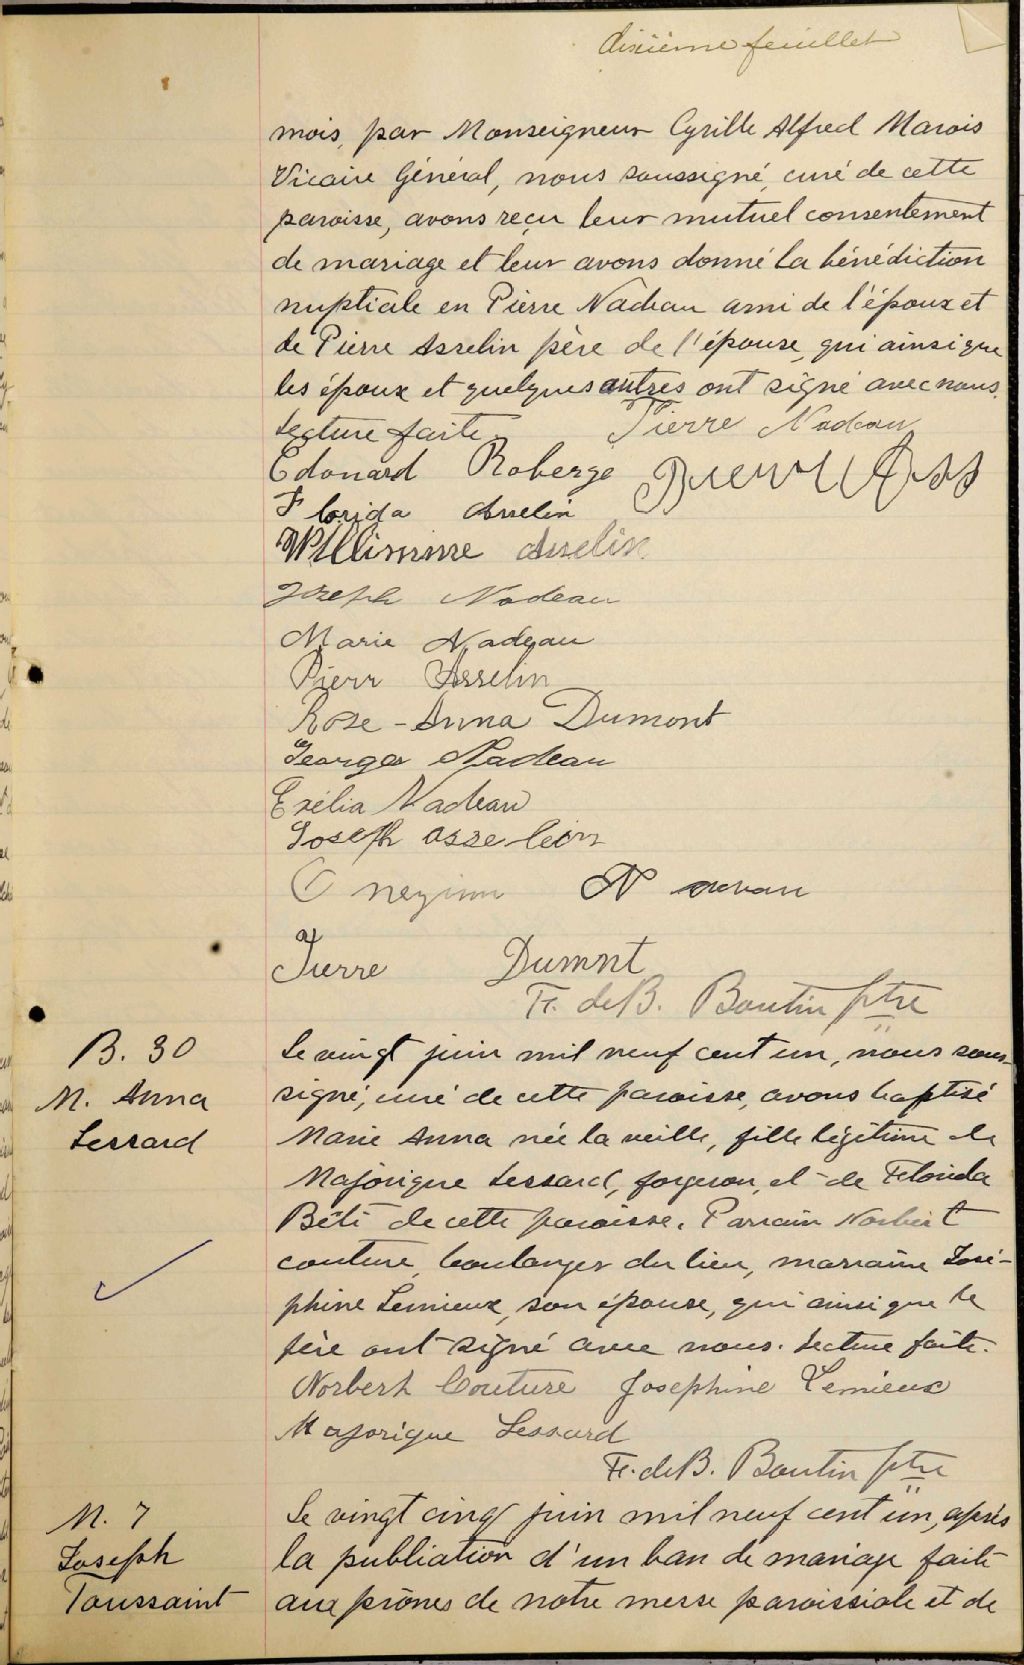 dixième feuillet
mois, par Monseigneur Cyrille Alfred Marois
Vicaire Général, nous soussigné, curé de cette
paroisse, avons reçu leur mutuel consentement
de mariage et leur avons donné la bénédiction
nuptiale en Pierre Nadeau ami de l'époux et
de Pierre Asselin père de l'épouse, qui ainsi que
les époux et quelques autres ont signé avec nous.
Lecture faite. Pierre Nadeau
Edouard Roberge
Florida Asselin
Willimme Asselin
Joseph Nadeau
Marie Nadeau
Pierr Asselin
Rose-Anna Dumont
Georges Nadeau
Exélia Nadeau
Joseph asselein
Pierre Dumont
Fr. de B. Boutin ptre
B. 30
M. Anna
Lessard
Le vingt juin mil neuf cent un, nous sous-
signé, curé de cette paroisse, avons baptisé
Marie Anna née la veille, fille légitime de
Majorique Lessard, forgeron, et de Florida
Béti de cette paroisse. Parrain Norbert
couture, boulanger du lieu, marraine José-
phine Lemieux, son épouse, qui ainsi que le
père ont signé avec nous. Lecture faite.
Norbert Couture Josephine Lemieux
Majorique Lessard
Fr. de B. Boutin ptre
M. 7
Joseph
Toussaint
Le vingt cinq juin mil neuf cent un, après
la publiation d'un ban de mariage faite
aux prônes de notre messe paroissiale et de